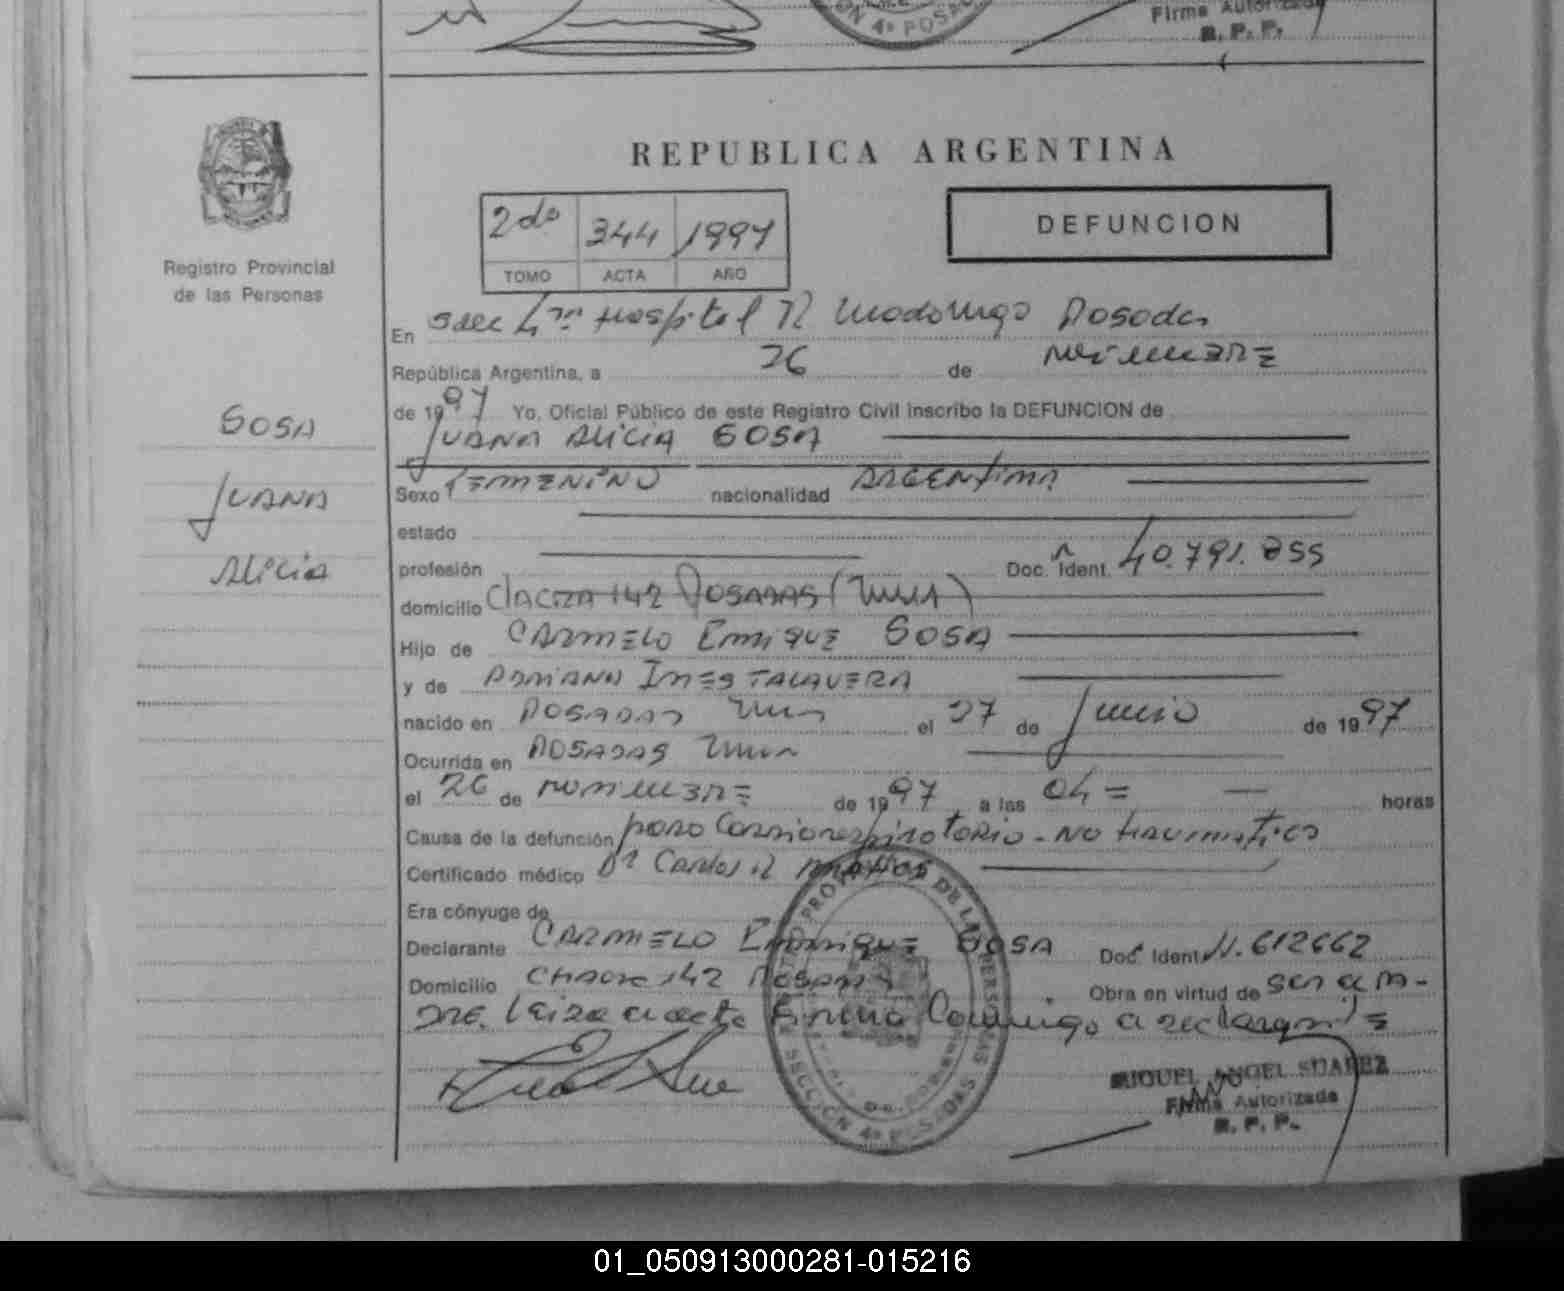 Firma Autorizada
R. P. P.
REPUBLICA ARGENTINA
2do 344 1997
TOMO ACTA AÑO
DEFUNCION
Registro Provincial
de las Personas
En Secc 4ta Hospital R Madariaga Posadas
República Argentina, a 26 de Noviembre
de 1997 Yo, Oficial Público de este Registro Civil inscribo la DEFUNCION de
JUANA ALICIA SOSA
SOSA
JUANA
ALICIA
Sexo FEMENINO nacionalidad ARGENTINA
estado
profesión Doc. Ident. 40.791.855
domicilio CHACRA 142 POSADAS (Mnes)
Hijo de CARMELO ENRIQUE SOSA
y de ADRIANA INES TALAVERA
nacido en POSADAS Mnes el 27 de Junio de 1997
Ocurrida en POSADAS Mnes
el 26 de NOVIEMBRE de 1997 a las 04 = horas
Causa de la defunción paro Cardiorespiratorio - NO traumatico
Certificado médico Dr Carlos R
Era cónyuge de
Declarante CARMELO ENRIQUE SOSA Doc. Ident. 11.612662
Domicilio CHACRA 142 POSADAS Obra en virtud de ser el pa-
dre. Leida el acta Firma Conmigo el declarante
REGISTRO PROVINCIAL DE LAS PERSONAS
SECCION 4ª POSADAS
MIGUEL ANGEL SUAREZ
Firma Autorizada
R. P. P.
01_050913000281-015216